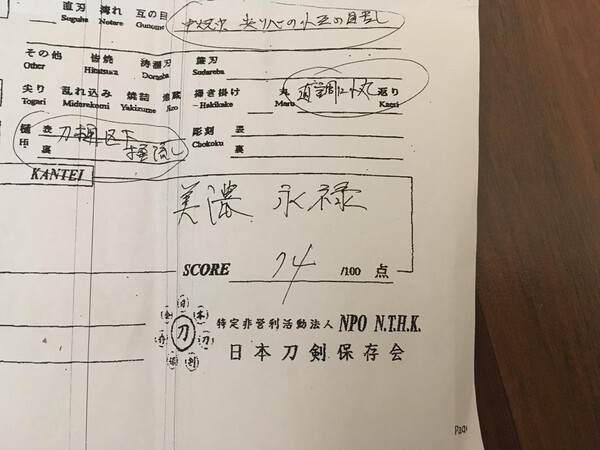 直刃 湾れ 互の目
Suguha Notare Gunome
尖り心の小互の目乱し
その他 皆焼 涛瀾刃 簾刃
Other Hitatsura Doranba Sudareba
尖り 乱れ込み 焼詰 地蔵 掃き掛け 丸 直調に小丸 返り
Togari Miderekomi Yakizume Jizo Hakikake Maru Kaeri
樋 表 刀樋区下 彫刻 表
Hi 裏 掻流し Chokoku 裏
KANTEI
美濃 永禄
SCORE 74 /100 点
特定非営利活動法人 NPO N.T.H.K.
刀
日本刀剣保存会
Page